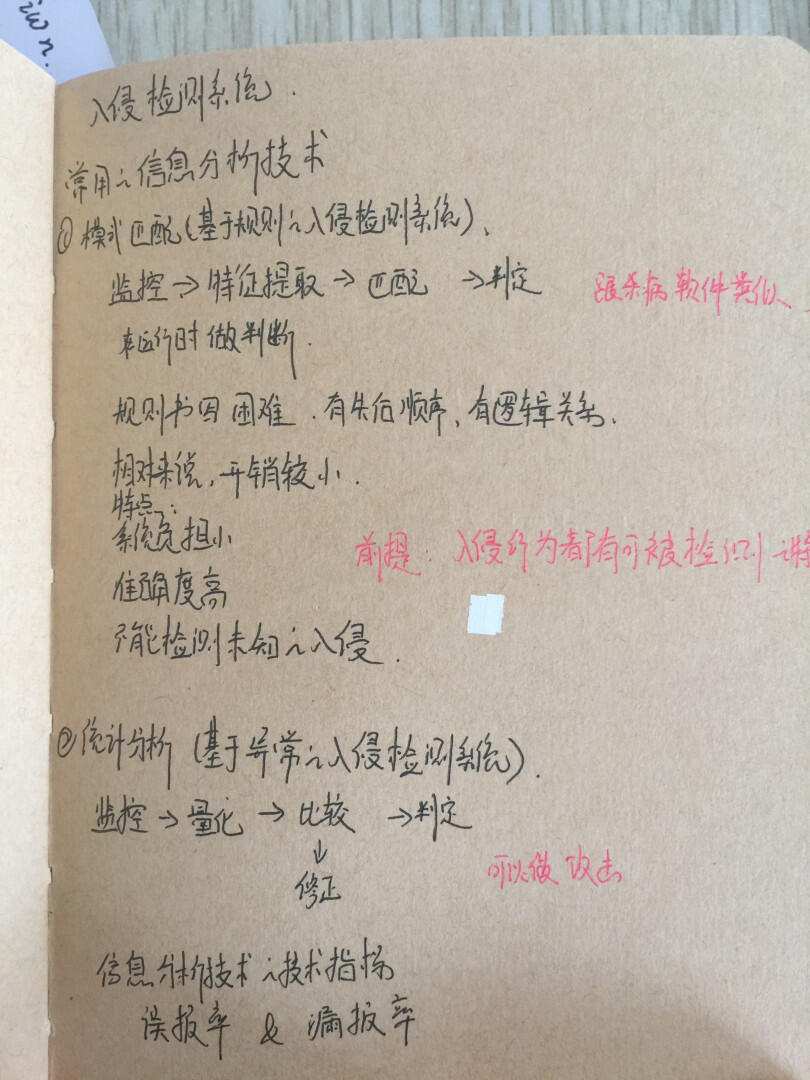 入侵检测系统.
常用之信息分析技术
① 模式匹配(基于规则之入侵检测系统)、
监控→特征提取→匹配 →判定
跟杀病软件类似、
来运行时做判断.
规则书写困难.有先后顺序、有逻辑关系.
相对来说,开销较小.
特点:
系统负担小
前提:入侵行为都有可被检测之特
准确度高
不能检测未知之入侵.
②统计分析(基于异常之入侵检测系统).
监控→量化→比较 →判定
↓
修正
可以做攻击
信息分析技术之技术指标
误报率 & 漏报率